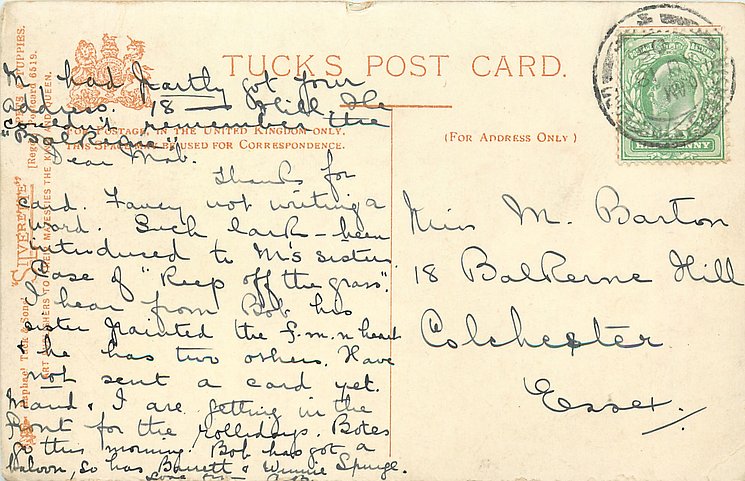 TUCK'S POST CARD.
(FOR ADDRESS ONLY)
FOR POSTAGE, IN THE UNITED KINGDOM ONLY,
THIS SPACE MAY BE USED FOR CORRESPONDENCE.
had partly got your
address. 18 — Hill. He
couldn't remember the
"Balkerne".
Dear Mab.
Thanks for
card. Fancy not writing a
word. Such lark — been
introduced to M's sister.
Case of "Keep off the grass".
I hear from Bob his
sister painted the f.m.n heart
& he has two others. Have
not sent a card yet.
Maud & I are getting in the
Front for the Hollidays. Botes
go this morning. Bob has got a
baloon, so has Barrett & Winnie Spurge.
Miss M. Barton
18 Balkerne Hill
Colchester
Essex.
HALFPENNY
"SILVERETTE"
Raphael Tuck & Sons'
ART PUBLISHERS TO THEIR MAJESTIES THE KING AND QUEEN.
Postcard 6519.
PUPPIES.